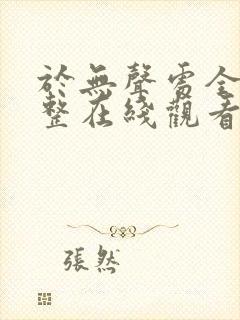 於無聲處全
整在綫觀看
張然